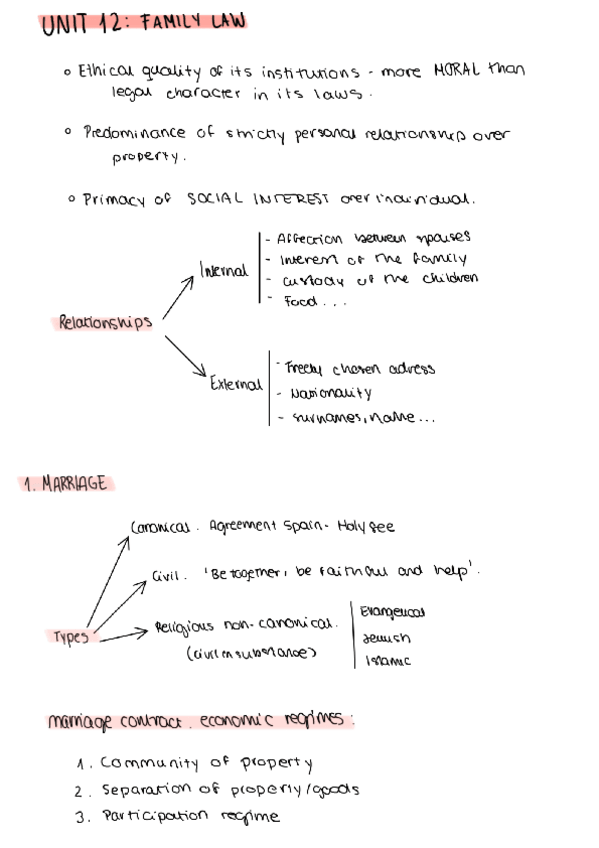 UNIT 12: FAMILY LAW
Ethical quality of its institutions - more MORAL than
legal character in its laws.
Predominance of strictly personal relationship over
property.
Primacy of SOCIAL INTEREST over individual.
Relationships
Internal
- Affection between spouses
- Interest of the family
- custody of the children
- Food...
External
- Freely chosen adress
- Nationality
- surnames, name...
1. MARRIAGE
Types
Canonical. Agreement Spain - Holy See
Civil. 'Be together, be faithful and help'.
Religious non-canonical.
(civil in substance)
Evangelical
Jewish
Islamic
marriage contract. economic regimes:
1. Community of property
2. Separation of property/goods
3. Participation regime